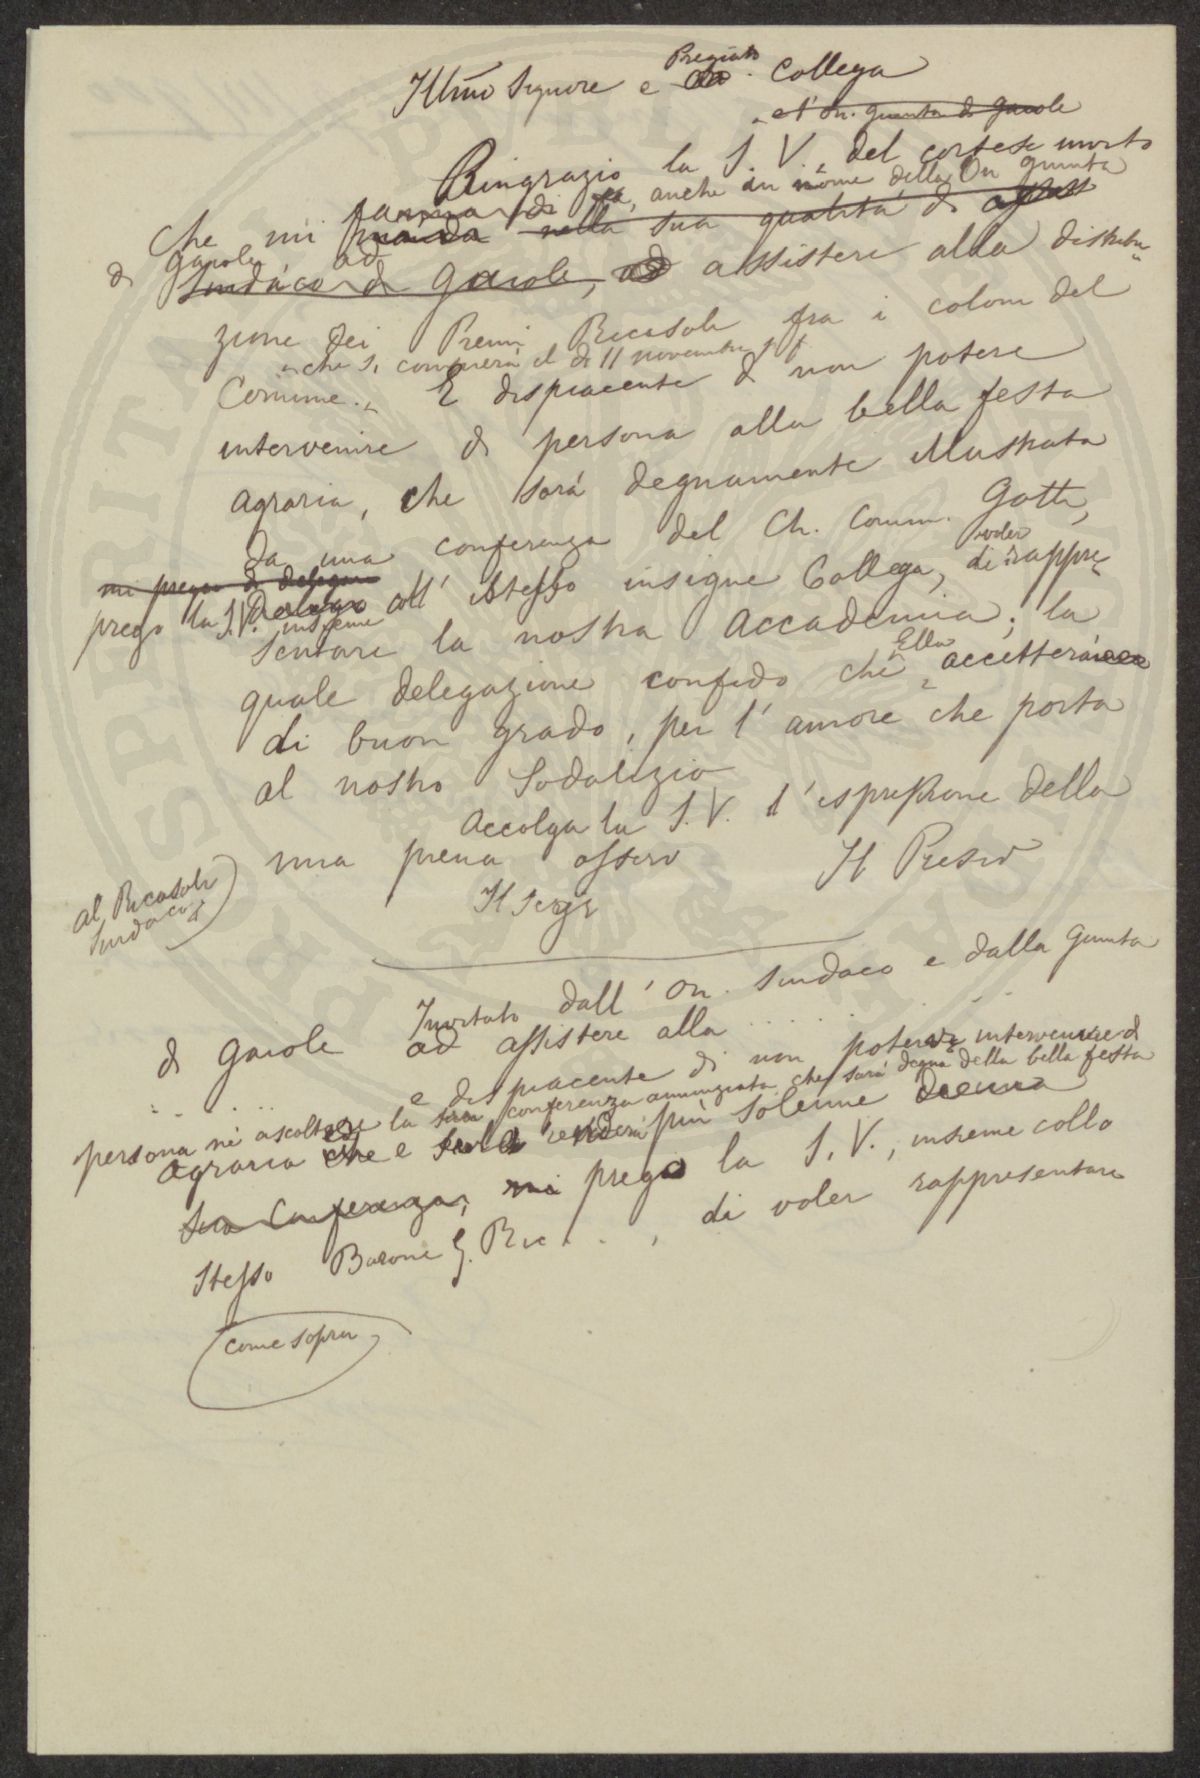 Illmo Signore e Pregiato Collega
e l'On. Giunta di Gaiole
Ringrazio la S. V., del cortese invito
che mi fa, anche in nome della On Giunta
manda nella sua qualità di
di Gaiole ad
Sindaco di Gaiole, ad assistere alla distribu-
zione dei Premi Ricasoli fra i coloni del
che si conferirà il dì 11 novembre
Comune. E dispiacente di non potere
intervenire di persona alla bella festa
agraria, che sarà degnamente illustrata
da una conferenza del Ch. Comm. Gotti,
mi prego di delegare
prego la S.V. insieme coll' istesso insigne Collega, di voler rappre-
sentare la nostra Accademia; la
quale delegazione confido che Ella accetterà
di buon grado, per l'amore che porta
al nostro Sodalizio
Accolga la S. V. l'espressione della
mia piena osserv
Il Segr Il Presid
al Ricasoli
Sindaco di
Invitato dall' On. Sindaco e dalla Giunta
di Gaiole ad assistere alla . . . . .
. . . . . e dispiacente di non poter intervenire di
persona nè ascoltare la sua conferenza annunziata che sarà degna della bella festa
agraria che e la renderà più solenne
sua Conferenza, mi prego la S. V., insieme collo
stesso Barone G. Ric . . . , di voler rappresentare
come sopra